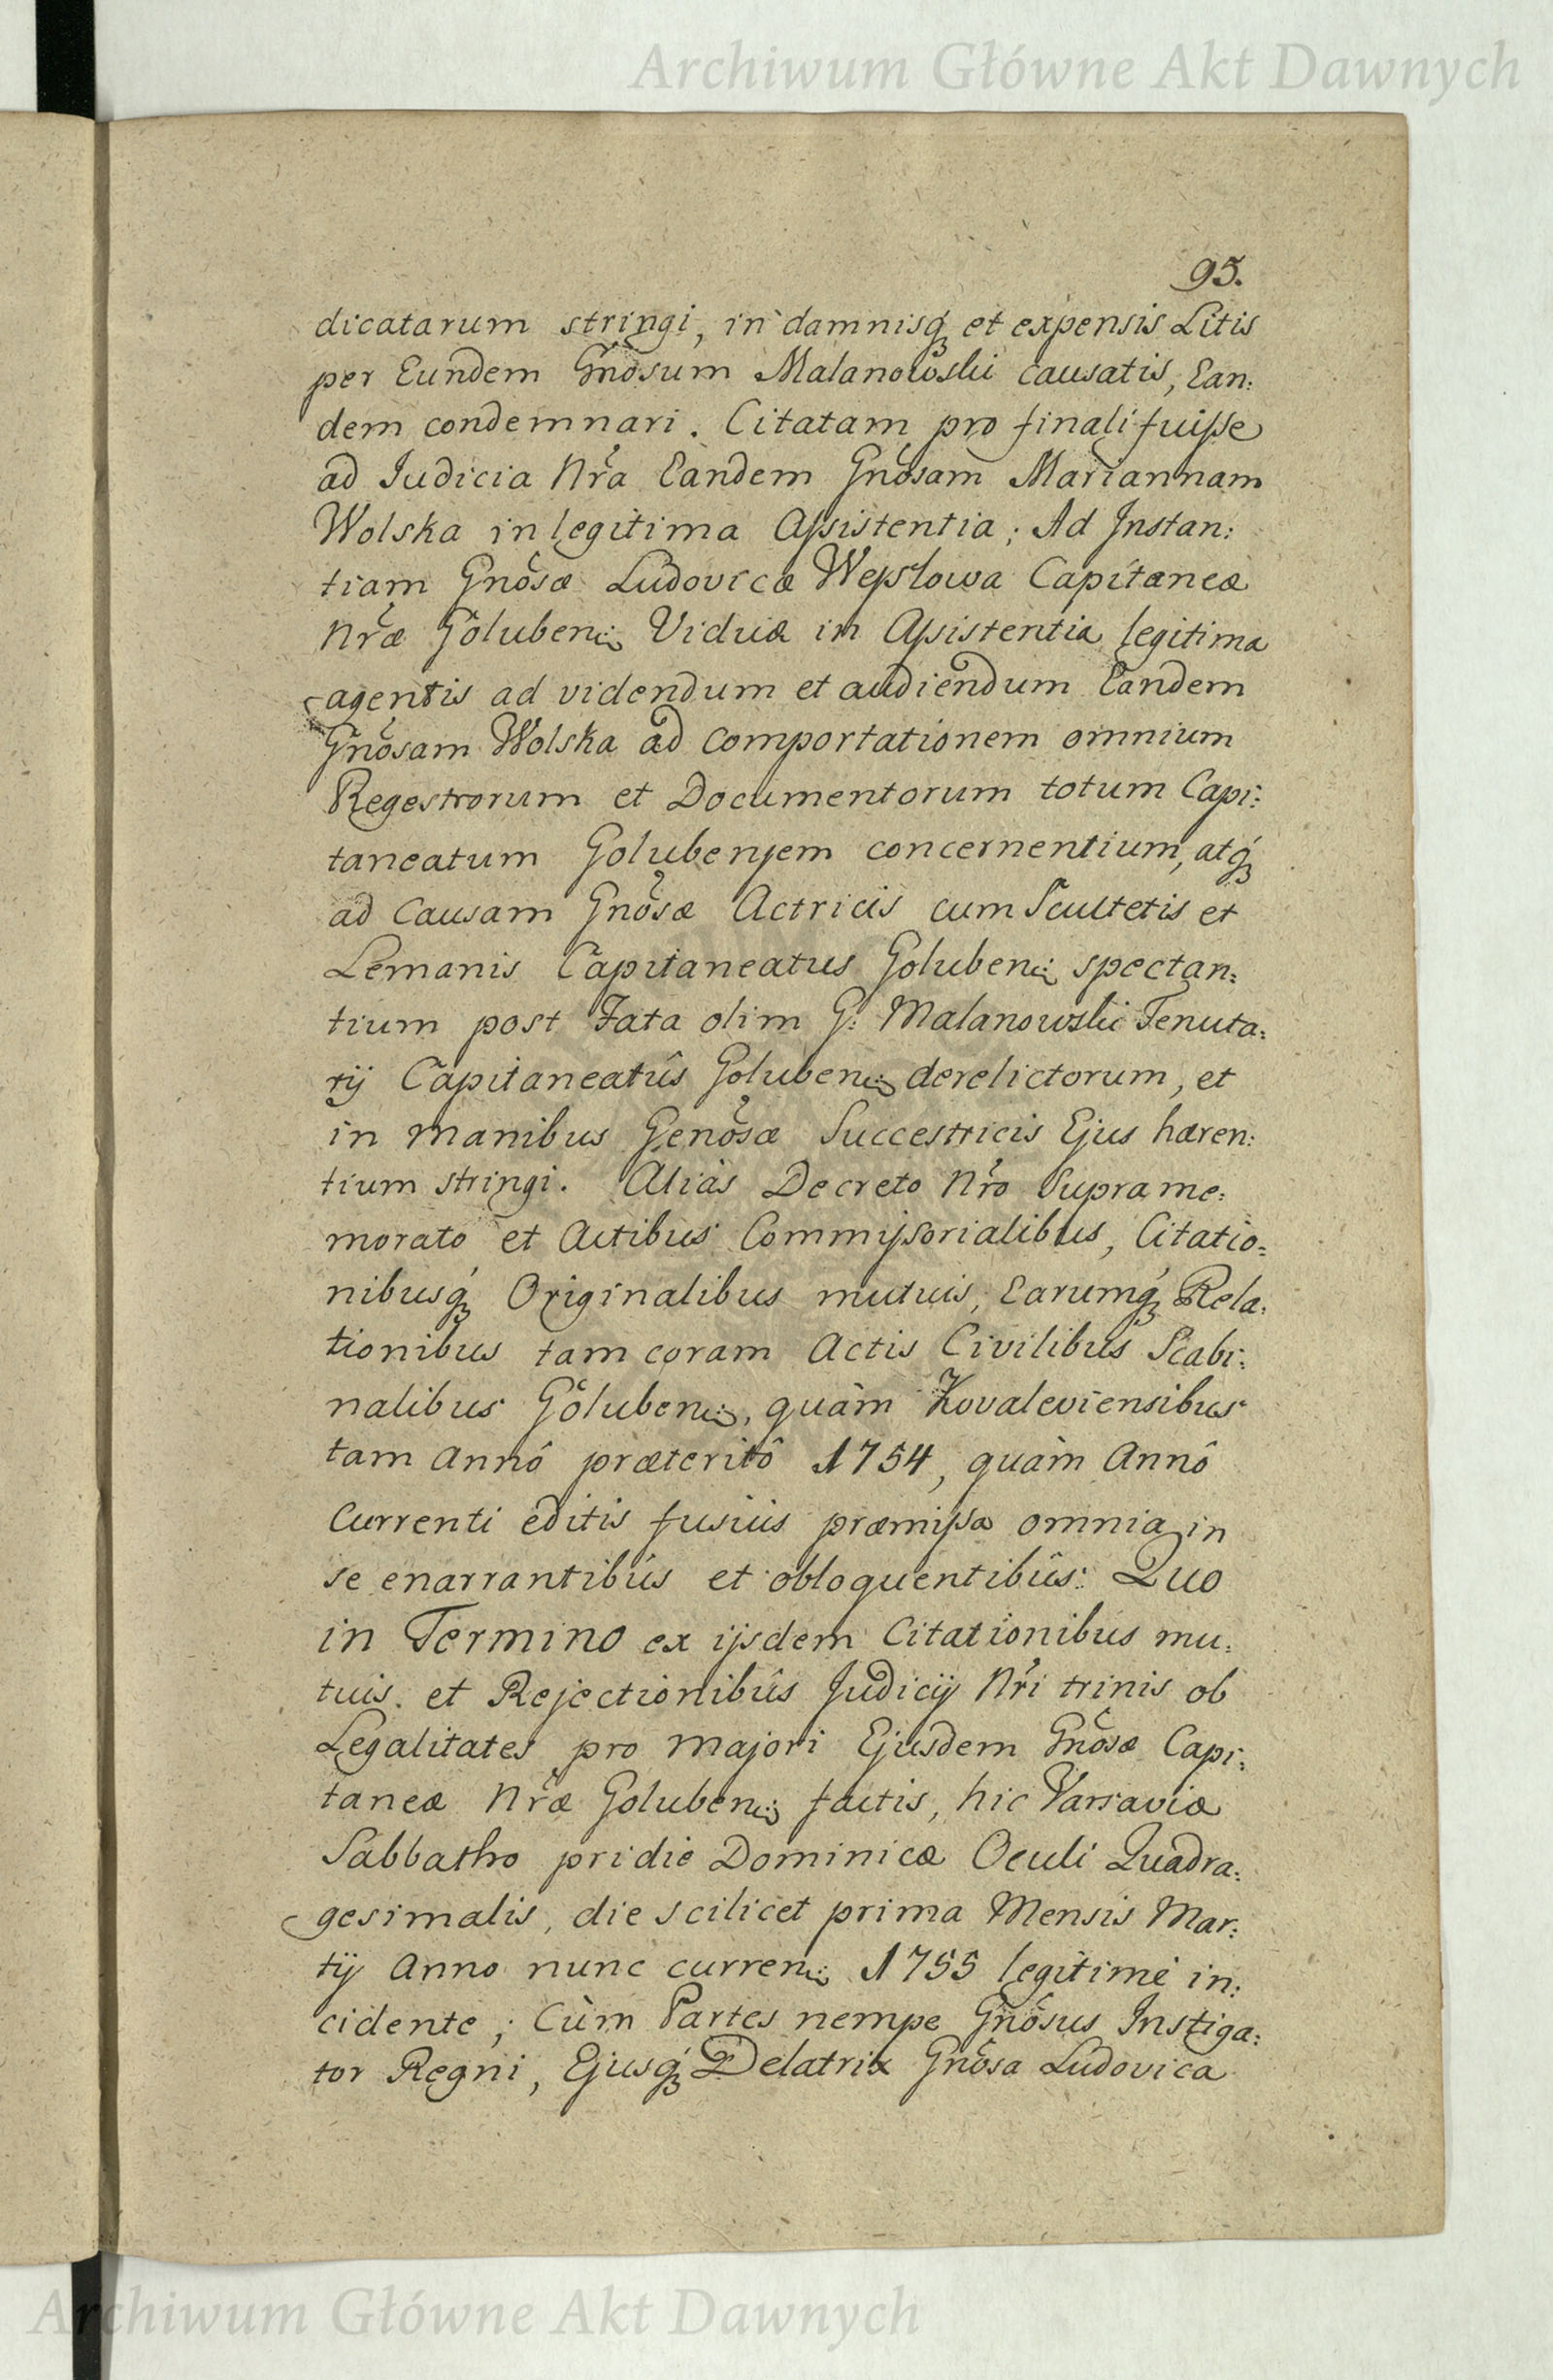 Archiwum Główne Akt Dawnych
95.
dicatarum stringi, in damnisq́ꝫ et expensis Litis
per Eundem Gnosum Malanowski causatis, Ean:
dem condemnari. Citatam pro finali fuiſse
ad Judicia Nra Eandem Gnosam Mariannam
Wolska in legitima Aſsistentia; Ad Instan:
tiam Gnosæ Ludovicæ Wejsłowa Capitaneæ
Nræ Goluben: Viduæ in Aſsistentia legitima
agentis ad videndum et audiendum Eandem
Gnosam Wolska ad comportationem omnium
Regestrorum et Documentorum totum Capi:
taneatum Golubensem concernentium, atq́ꝫ
ad Causam Gnosæ Actricis cum Scultetis et
Lemanis Capitaneatus Goluben: spectan:
tium post Fata olim G: Malanowski Tenuta:
rij Capitaneatûs Goluben: derelictorum, et
in manibus Genosæ Succestricis Ejus hæren:
tium stringi. Aliàs Decreto Nro Suprame:
morato et Actibus Commiſsorialibus, Citatio:
nibusq́ꝫ Originalibus mutuis, Earumq́ꝫ Rela:
tionibus tam coram Actis Civilibus Scabi:
nalibus Goluben:, quàm Kovaleviensibus
tam Annô præteritô 1754, quàm Annô
Currenti editis fusius præmiſsa omnia in
se enarrantibûs et obloquentibûs: Quo
in Termino ex ijsdem Citationibus mu:
tuis et Rejectionibûs Judicij Nri trinis ob
Legalitates pro majori Ejusdem Gnosæ Capi:
taneæ Nræ Goluben: factis, hic Varsaviæ
Sabbatho pridie Dominicæ Oculi Quadra:
gesimalis, die scilicet prima Mensis Mar:
tij Anno nunc curren: 1755 legitimè in:
cidente; Cùm Partes nempe Gnosus Instiga:
tor Regni, Ejusq́ꝫ Delatrix Gnosa Ludovica
Archiwum Główne Akt Dawnych